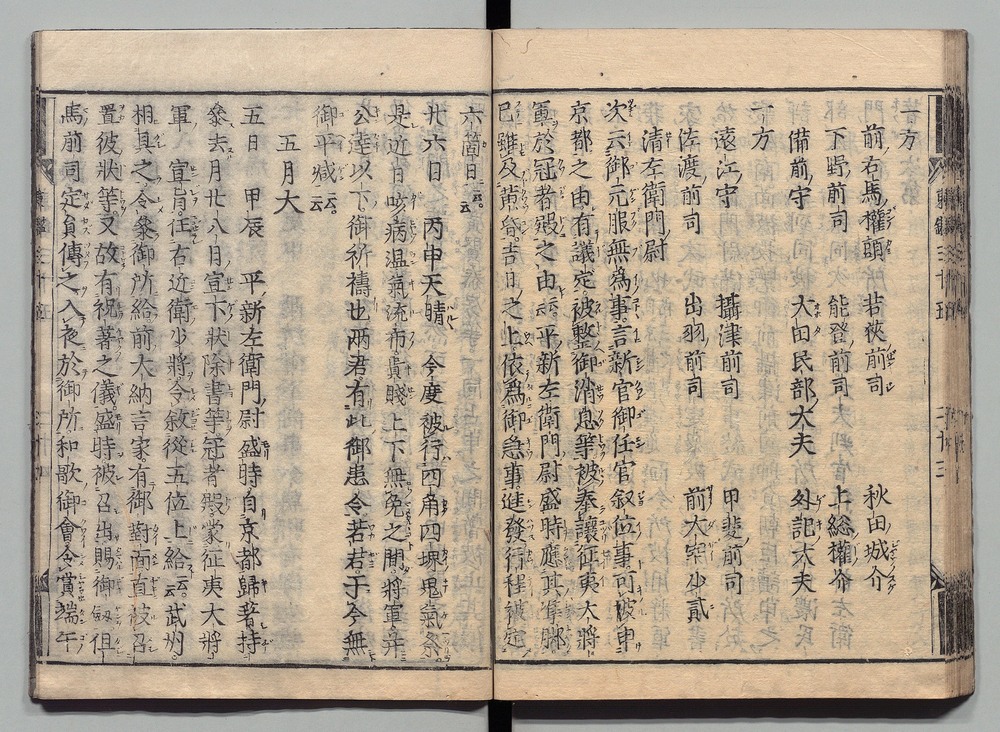 一方
前右馬權頭 若狹前司 秋田城介
下野前司 能登前司 上総權介
備前守 大田民部大夫 外記大夫
一方
遠江守 攝津前司 甲斐前司
佐渡前司 出羽前司 前太宰少貳
清左衛門尉
次云御元服無為事言新官御任官叙位事可被申
京都之由有議定被整御消息等被奉讓征夷大將
軍於冠者殿之由云云平新左衛門尉盛時應其使節
已雖及黄昏吉日之上依爲御急事進發行程被定
六箇日云云
廿六日 丙申天晴 今度被行四角四堺鬼氣祭
是近日咳病温氣流布貴賤上下無免之間將軍并
公達以下御祈禱也兩君有此御患令若若于今無
御平臧云云
五月大
五日 甲辰 平新左衛門尉盛時自京都歸著持
參去月廿八日宣下狀除書等冠者殿蒙征夷大將
軍 宣旨任右近衛少將令敘從五位上給云云武州
相具之令參御所給前大納言家有御對面直被召
置彼狀等又故有祝著之儀盛時被召出賜御劔但
馬前司定員傳之入夜於御所和歌御會令賞端午